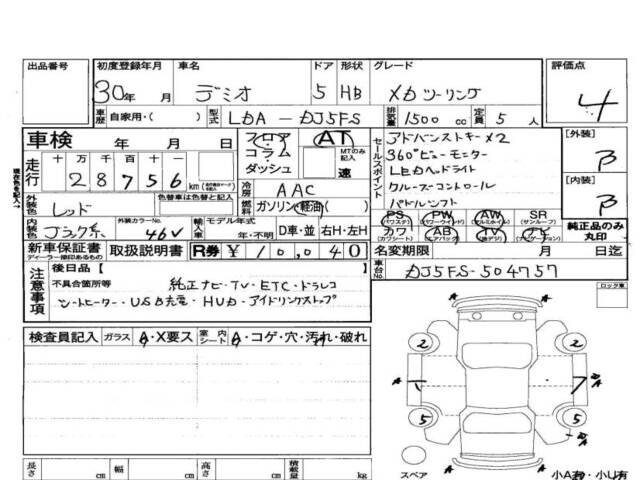 出品番号 初度登録年月 車名 ドア 形状 グレード 評価点
30年 月 デミオ 5 HB XDツーリング 4
車歴 自家用・( ) 型式 LDA-DJ5FS 排気量 1500cc 定員 5人
車検 年 月 日 フロア AT セールスポイント アドバンストキーX2 [外装]
コラム MTのみ記入 360°ビューモニター B
走行 十万千百十一 ダッシュ 速 LEDヘッドライト
28756 km 冷房 AAC クルーズコントロール [内装]
外装色 レッド 色替車は色替と記入 燃料 ガソリン・軽油( ) パドルシフト B
PS PW AW SR
(パワステ) (パワーウインド) (アルミホイル) (サンルーフ)
内装色 ブラック系 外装カラーNo. 46V 輸入車 モデル年式 年・不明 D車・並 右H・左H カワ AB TV ナビ 純正品のみ丸印
(カワシート) (エアバック) (地デジ) (ナビゲーション)
新車保証書 取扱説明書 R券 ¥10,040 名変期限 月 日迄
ディーラー捺印あるもの
車台No. DJ5FS-504757
注意事項 後日品【 】 ロック車
不具合箇所等 純正ナビ・TV・ETC・ドラレコ
シートヒーター・USB充電・HUD・アイドリングストップ
検査員記入 ガラス A・X要ス 室内シート A・コゲ・穴・汚れ・破れ
A A
2 2
A A
5 5
A A
スペア 小A有・小U有
長さ cm 幅 cm 高さ cm 積載量 kg